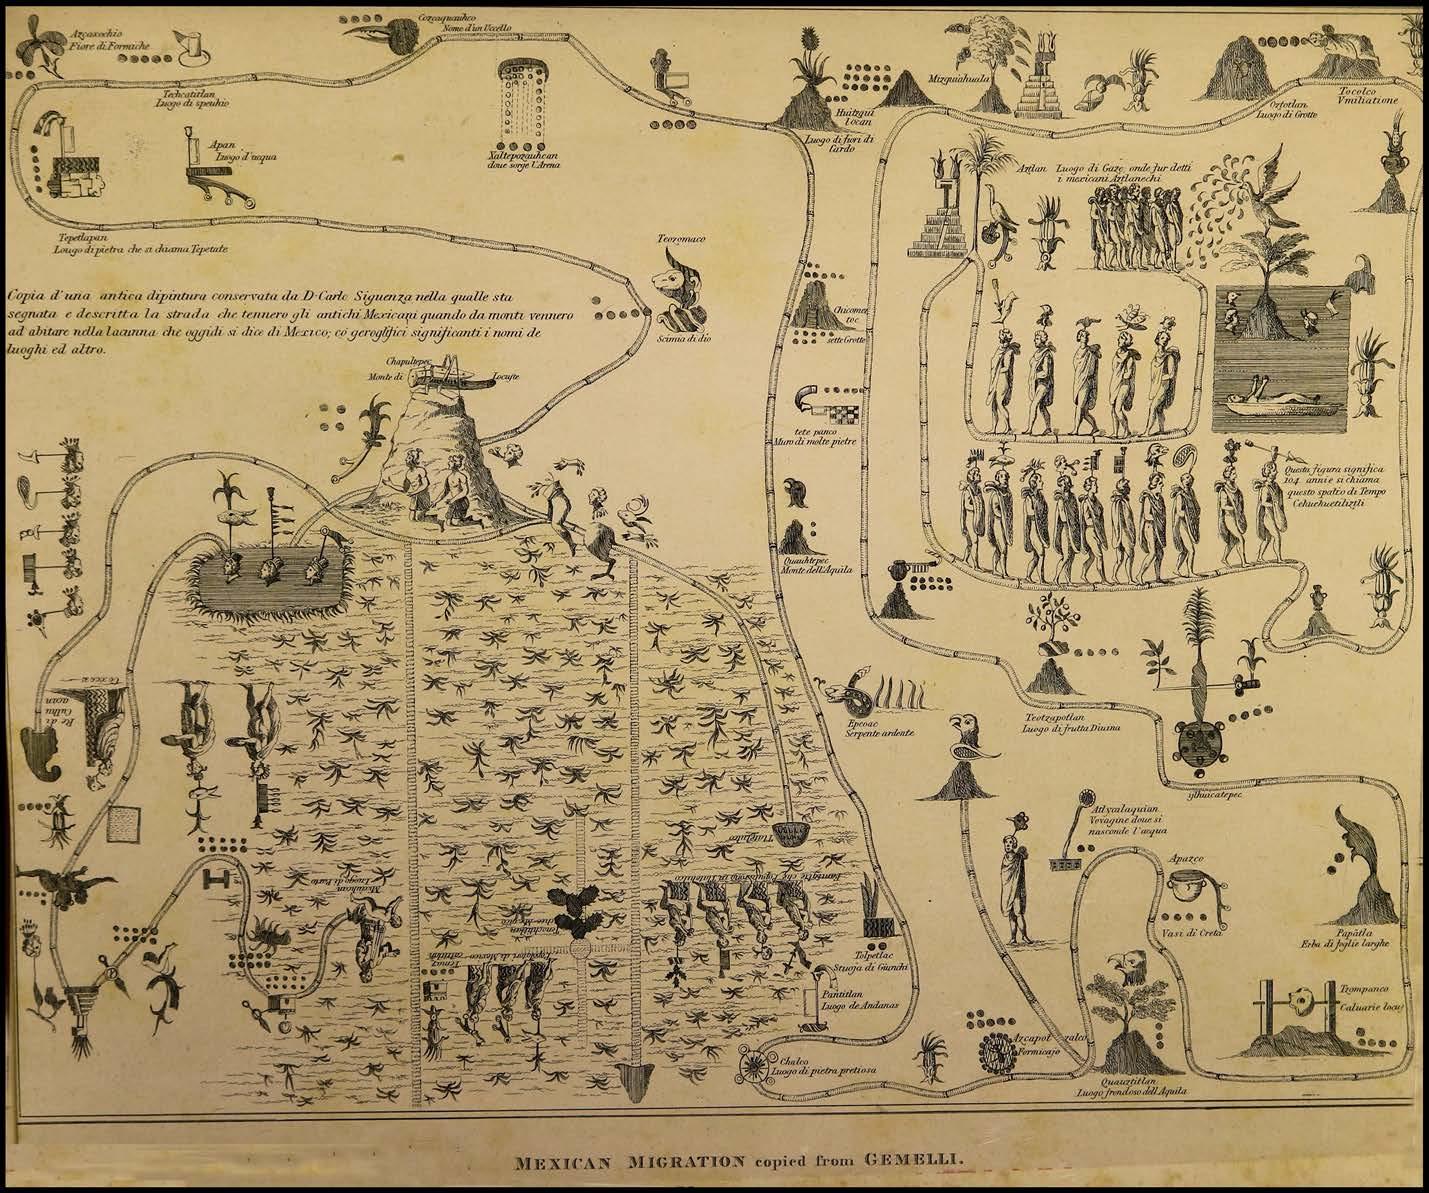 Azcaxochio
Fiore di Formiche
Cozcaquauhco
Nome d'un Uccello
Techcatitlan
Luogo di spechio
Apan
Luogo d'acqua
Xaltepozauhcan
doue sorge l'Arena
Tepetlapan
Lougo di pietra che si chiama Tepetate
Teozomaco
Scimia di dio
Huitzqui
locan
Luogo di fiori di
Cardo
Mizquiahuala
Oztotlan
Luogo di Grotte
Tocolco
Vmiliatione
Aztlan Luogo di Gaze, onde fur detti
i mexicani Aztlanechi
Copia d'una antica dipintura conservata da D. Carlo Siguenza nella qualle sta
segnata e descritta la strada che tennero gli antichi Mexicani quando da monti vennero
ad abitare nella lacunna che oggidi si dice di Mexico; co geroglifici significanti i nomi de
luoghi ed altro.
Chapultepec
Monte di Locuste
Chicomoz
toc
sette Grotte
tete panco
Muro di molte pietre
Quauhtepec
Monte dell'Aquila
Questa figura significa
104 anni e si chiama
questo spatio di Tempo
Cehuehuetiliztli
Epcoac
Serpente ardente
Teotzapotlan
Luogo di frutta Diuina
ylhuicatepec
Re di
Culhu
acan
Coxcox
Atlycalaquian
Voragine doue si
nasconde l'acqua
Apazco
Vasi di Creta
Papatla
Erba di foglie larghe
Tlatilulco
Famiglie che
Mixiuhcan
Luogo di Parto
Tenochtitlan
due Mexico
Temaz
catitlan
di Mexico
Tolpetlac
Stuoja di Giunchi
Pantitlan
Luogo de Andanas
Azcapotzalco
Formicajo
Chalco
Luogo di pietra pretiosa
Quauztitlan
Luogo frendoso dell'Aquila
Tzompanco
Caluarie locus
MEXICAN MIGRATION copied from GEMELLI.